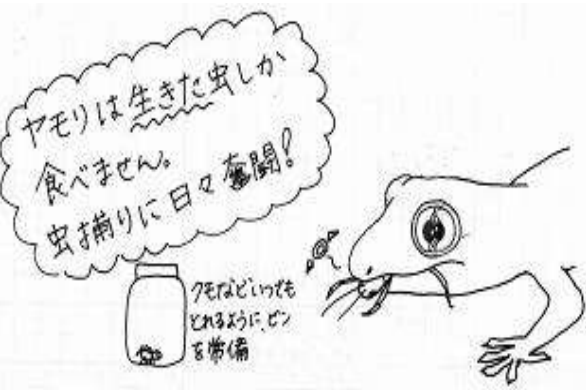 ヤモリは生きた虫しか
食べません。
虫捕りに日々奮闘!
クモなどいつでも
とれるように、ビン
を常備